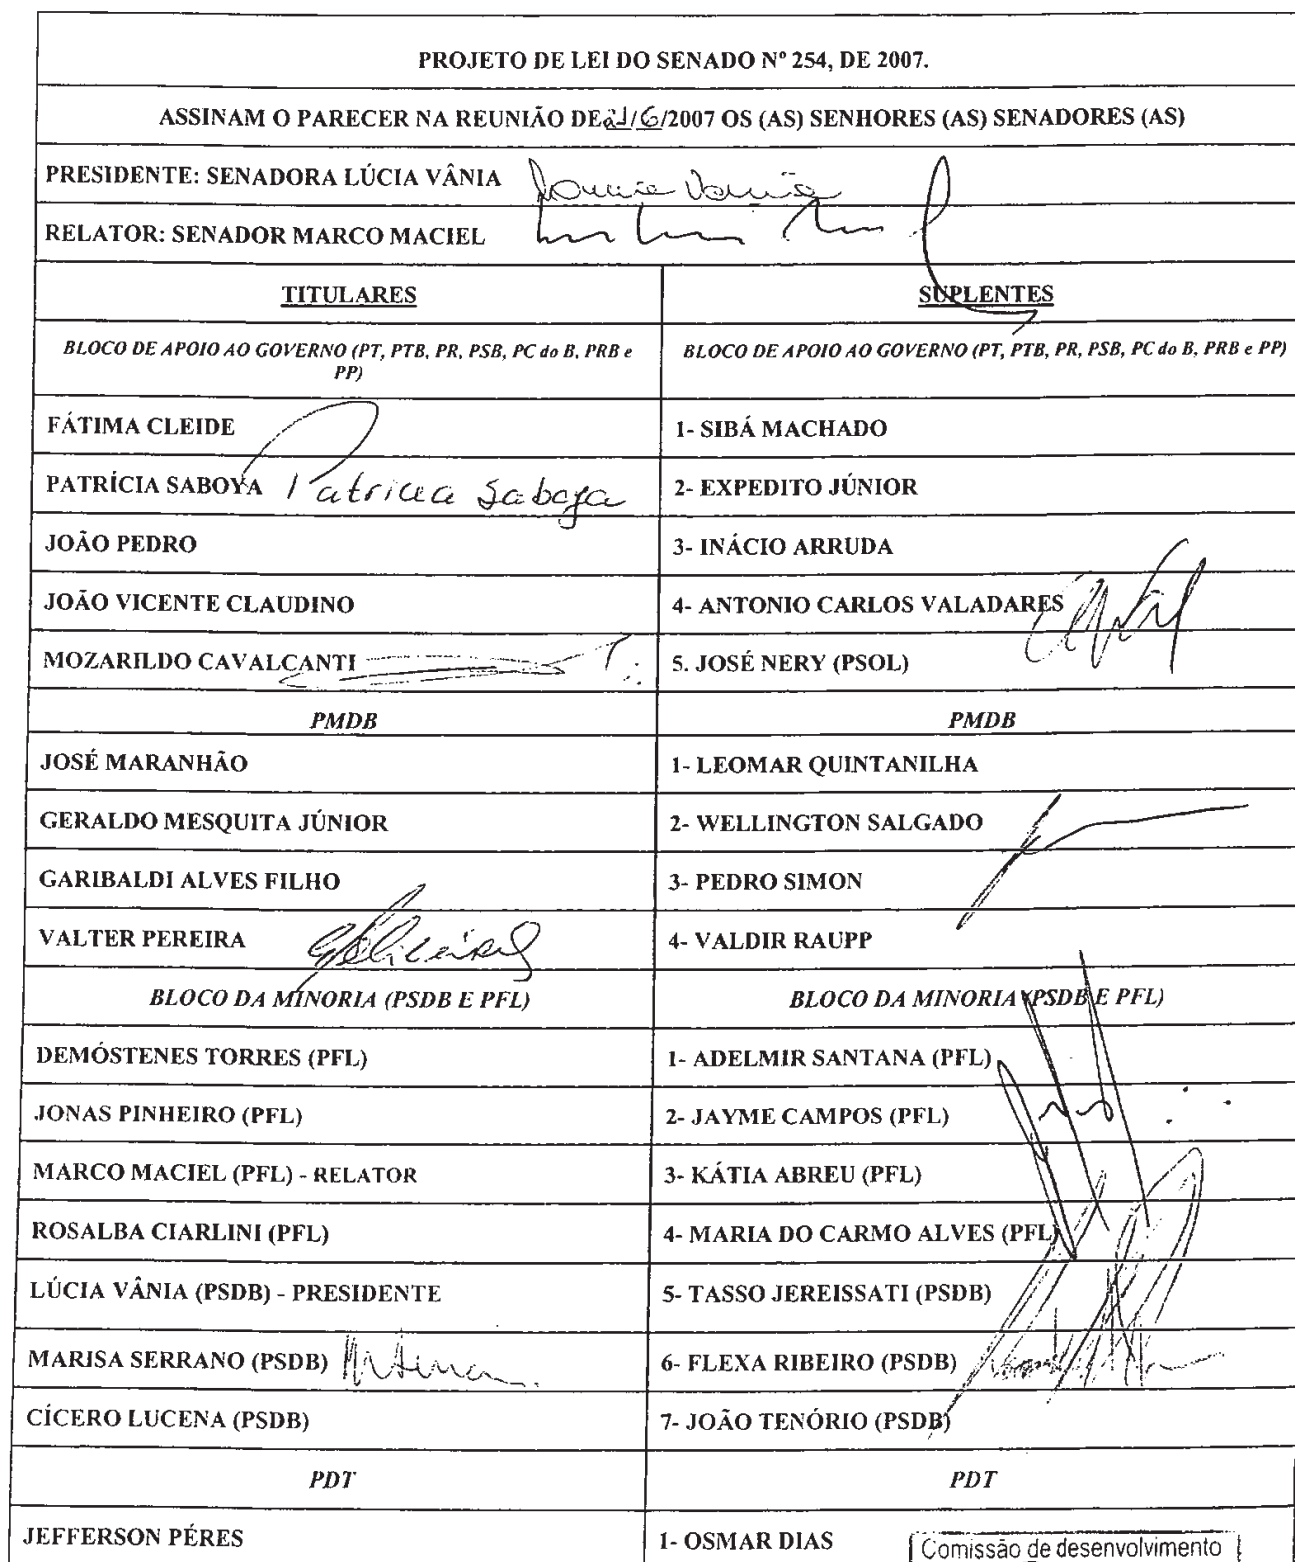 PROJETO DE LEI DO SENADO Nº 254, DE 2007.
ASSINAM O PARECER NA REUNIÃO DE 21/6/2007 OS (AS) SENHORES (AS) SENADORES (AS)
PRESIDENTE: SENADORA LÚCIA VÂNIA
RELATOR: SENADOR MARCO MACIEL
TITULARES
SUPLENTES
BLOCO DE APOIO AO GOVERNO (PT, PTB, PR, PSB, PC do B, PRB e
PP)
BLOCO DE APOIO AO GOVERNO (PT, PTB, PR, PSB, PC do B, PRB e PP)
FÁTIMA CLEIDE
1- SIBÁ MACHADO
PATRÍCIA SABOYA Patricia Saboya
2- EXPEDITO JÚNIOR
JOÃO PEDRO
3- INÁCIO ARRUDA
JOÃO VICENTE CLAUDINO
4- ANTONIO CARLOS VALADARES
MOZARILDO CAVALCANTI
5. JOSÉ NERY (PSOL)
PMDB
PMDB
JOSÉ MARANHÃO
1- LEOMAR QUINTANILHA
GERALDO MESQUITA JÚNIOR
2- WELLINGTON SALGADO
GARIBALDI ALVES FILHO
3- PEDRO SIMON
VALTER PEREIRA
4- VALDIR RAUPP
BLOCO DA MINORIA (PSDB E PFL)
BLOCO DA MINORIA (PSDB E PFL)
DEMÓSTENES TORRES (PFL)
1- ADELMIR SANTANA (PFL)
JONAS PINHEIRO (PFL)
2- JAYME CAMPOS (PFL)
MARCO MACIEL (PFL) - RELATOR
3- KÁTIA ABREU (PFL)
ROSALBA CIARLINI (PFL)
4- MARIA DO CARMO ALVES (PFL)
LÚCIA VÂNIA (PSDB) - PRESIDENTE
5- TASSO JEREISSATI (PSDB)
MARISA SERRANO (PSDB)
6- FLEXA RIBEIRO (PSDB)
CÍCERO LUCENA (PSDB)
7- JOÃO TENÓRIO (PSDB)
PDT
PDT
JEFFERSON PÉRES
1- OSMAR DIAS
Comissão de desenvolvimento